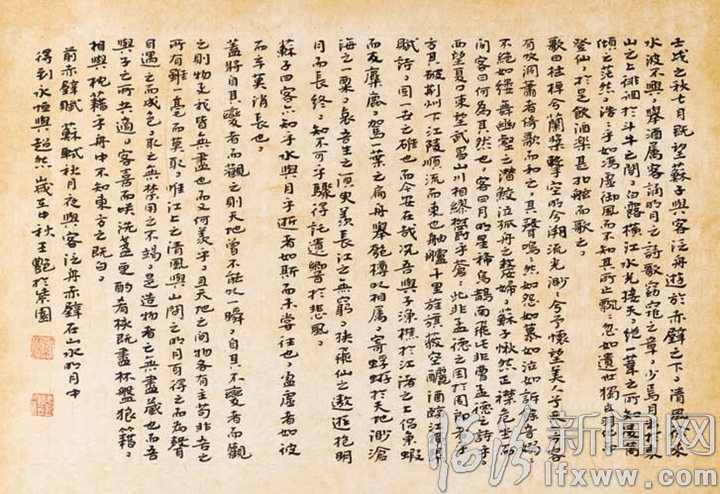 壬戌之秋七月既望蘇子與客泛舟遊於赤壁之下清風徐來
水波不興舉酒属客誦明月之詩歌窈窕之章少焉月出於東
山之上徘徊於斗牛之間白露橫江水光接天縱一葦之所如凌萬
頃之茫然浩浩乎如馮虛御風而不知其所止飄飄乎如遺世獨立羽化而
登仙於是飲酒樂甚扣舷而歌之
歌曰桂棹兮蘭槳擊空明兮溯流光渺渺兮予懷望美人兮天一方客
有吹洞簫者倚歌而和之其聲嗚嗚然如怨如慕如泣如訴餘音嫋嫋
不絕如縷舞幽壑之潛蛟泣孤舟之嫠婦蘇子愀然正襟危坐而
問客曰何為其然也客曰月明星稀烏鵲南飛此非曹孟德之詩乎
西望夏口東望武昌山川相繆鬱乎蒼蒼此非孟德之困於周郎者乎
方其破荊州下江陵順流而東也舳艫千里旌旗蔽空釃酒臨江橫槊
賦詩固一世之雄也而今安在哉況吾與子漁樵於江渚之上侶魚蝦
而友麋鹿駕一葉之扁舟舉匏樽以相屬寄蜉蝣於天地渺滄
海之一粟哀吾生之須臾羨長江之無窮挾飛仙之遨遊抱明
月而長終知不可乎驟得託遺響於悲風
蘇子曰客亦知乎水與月乎逝者如斯而未嘗往也盈虛者如彼
而卒莫消長也
蓋將自其變者而觀之則天地曾不能以一瞬自其不變者而觀
之則物與我皆無盡也而又何羨乎且天地之間物各有主苟非吾之
所有雖一毫而莫取惟江上之清風與山間之明月耳得之而為聲
目遇之而成色取之無禁用之不竭是造物者之無盡藏也而吾
與子之所共適客喜而笑洗盞更酌肴核既盡杯盤狼籍
相與枕藉乎舟中不知東方之既白
前赤壁賦蘇軾秋月夜與客泛舟赤壁在山水明月中
得到永恆與超然歲在中秋王艷於紫園
临汾新闻网
www.lfxww.com